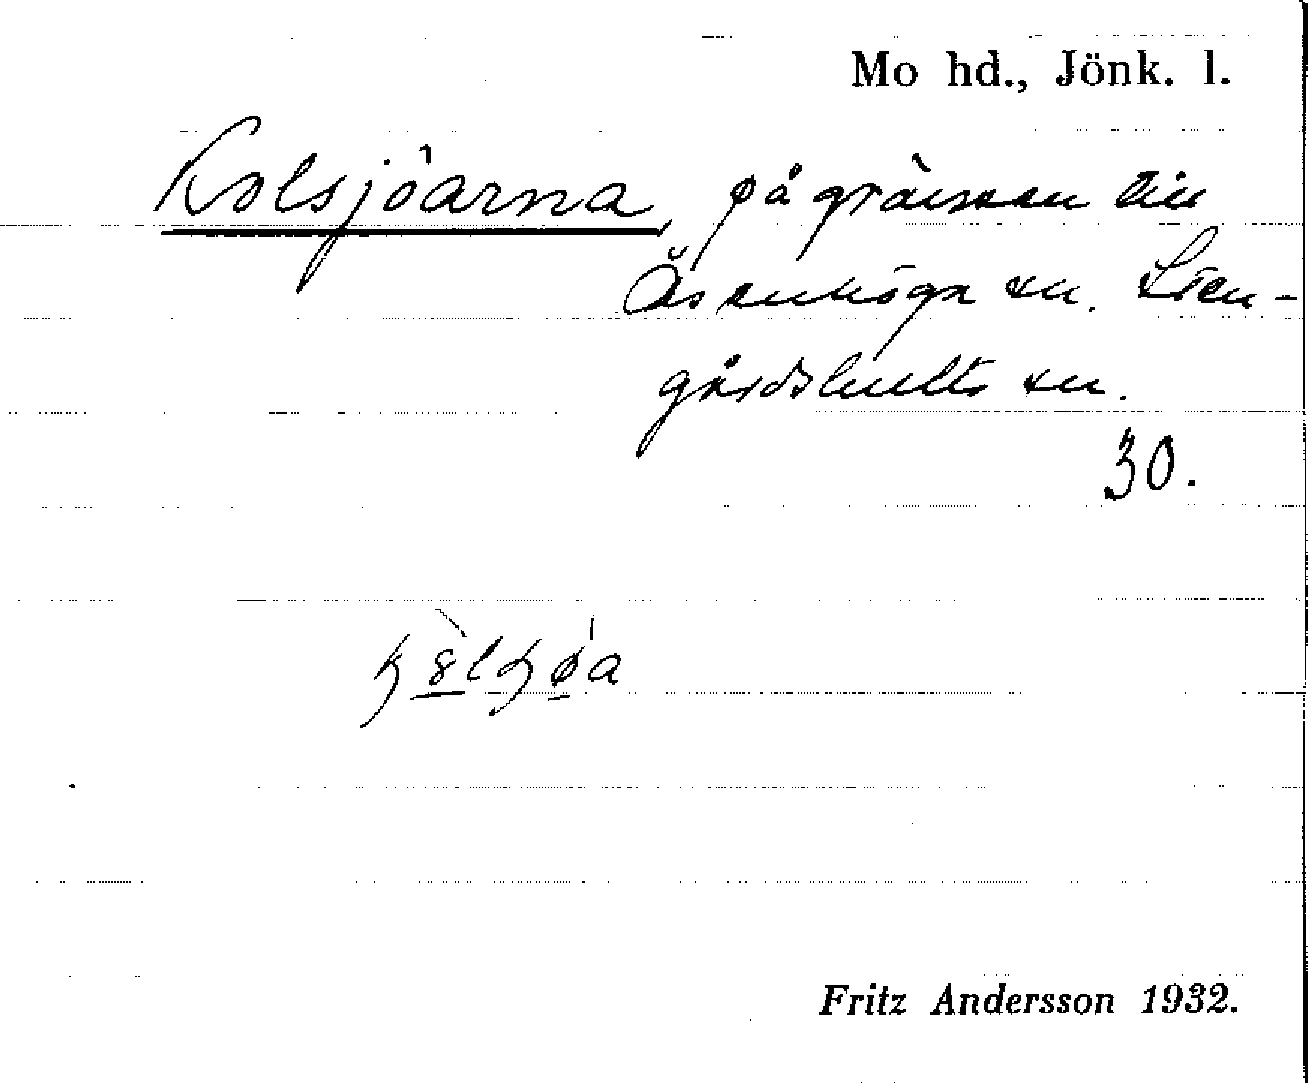 Mo hd., Jönk. l.
Kolsjöarna, på gränsen till
Åsenhöga sn. Sten-
gårdshults sn.
30.
Fritz Andersson 1932.